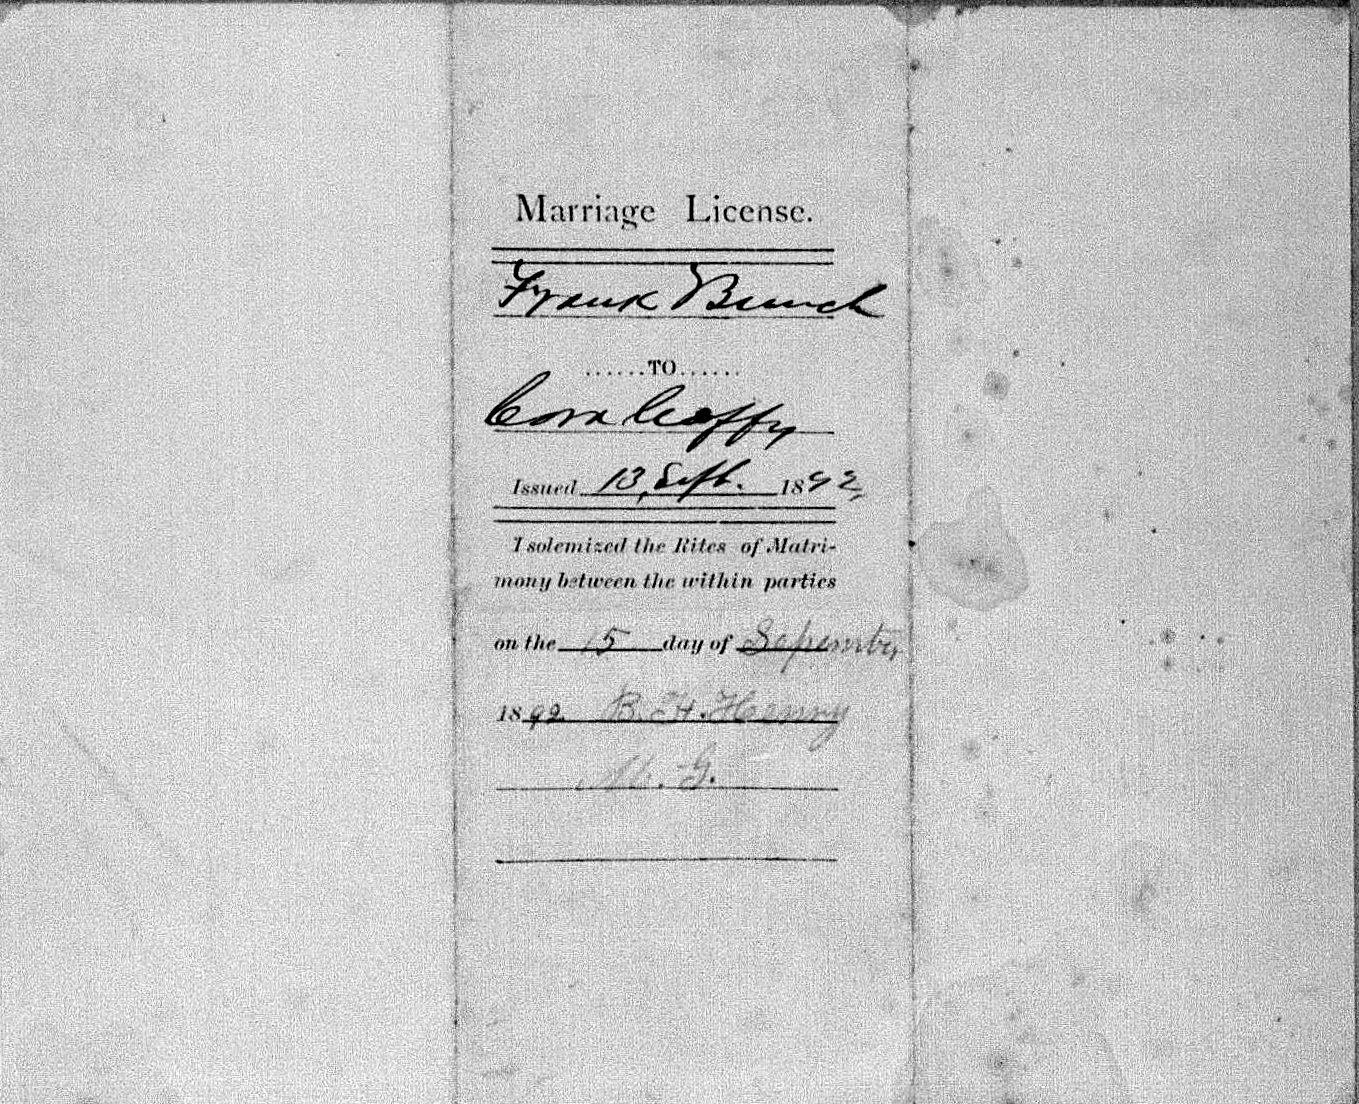 Marriage License.
Frank Bunch
......TO......
Cora Coffy
Issued 13, Sept. 1892,
I solemized the Rites of Matri-
mony between the within parties
on the 15 day of Sepembr,
1892 B. H. Henry
M. G.